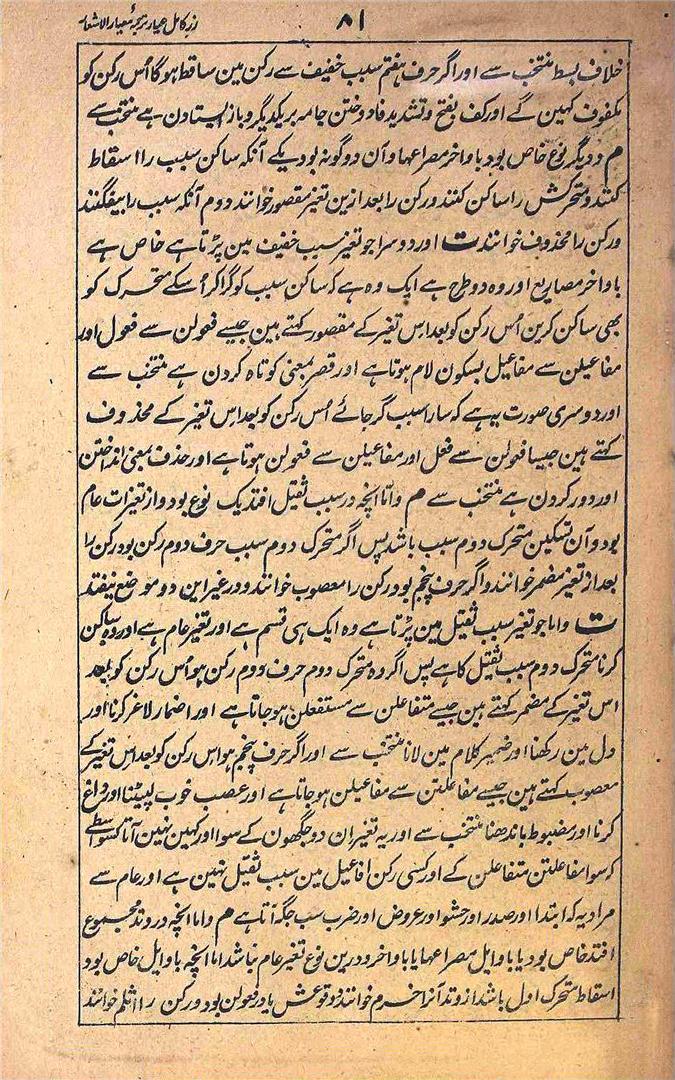 زر کامل عیار ترجمۂ معیار الاشعار
۸۱
خلاف بسط منتخب سے اور اگر حرف ہفتم سبب خفیف سے رکن مین ساقط ہوگا اُس رکن کو
مکفوف کہین گے اور کف بفتح و تشدید فا دوختن جامہ بر یکدیگر و باز ایستادن ہے منتخب سے
م و دیگر نوع خاص بود باواخر مصراعہا و آن دو گونہ بود یکے آنکہ ساکن سبب را اسقاط
کنند و متحرکش را ساکن کنند و رکن را بعد ازین تغیر مقصور خوانند دوم آنکہ سبب را بیفگنند
و رکن را محذوف خوانند ت اور دوسرا جو تغیر سبب خفیف مین پڑتا ہے خاص ہے
باواخر مصاریع اور وہ دو طرح ہے ایک وہ ہے کہ ساکن سبب کو گرا کر اُسکے متحرک کو
بھی ساکن کرین اُس رکن کو بعد اس تغیر کے مقصور کہتے ہین جیسے فعولن سے فعول اور
مفاعیلن سے مفاعیل بسکون لام ہوتا ہے اور قصر بمعنی کوتاہ کردن ہے منتخب سے
اور دوسری صورت یہ ہے کہ سارا سبب گر جائے اُس رکن کو بعد اس تغیر کے محذوف
کہتے ہین جیسا فعولن سے فعل اور مفاعیلن سے فعولن ہوتا ہے اور حذف بمعنی انداختن
اور دور کردن ہے منتخب سے م و اما انچہ در سبب ثقیل افتد یک نوع بود و از تغیرات عام
بود و آن تسکین متحرک دوم سبب باشد پس اگر متحرک دوم سبب حرف دوم رکن بود رکن را
بعد از تغیر مضمر خوانند و اگر حرف پنجم بود رکن را معصوب خوانند و در غیر این دو موضع نیفتد
ت و اما جو تغیر سبب ثقیل مین پڑتا ہے وہ ایک ہی قسم ہے اور تغیر عام ہے اور وہ ساکن
کرنا متحرک دوم سبب ثقیل کا ہے پس اگر وہ متحرک دوم حرف دوم رکن ہو اُس رکن کو بعد
اس تغیر کے مضمر کہتے ہین جیسے متفاعلن سے مستفعلن ہو جاتا ہے اور اضمار لاغر کرنا اور
دل مین رکھنا اور ضمیر کلام مین لانا منتخب سے اور اگر حرف پنجم ہو اس رکن کو بعد اس تغیر کے
معصوب کہتے ہین جیسے مفاعلتن سے مفاعیلن ہو جاتا ہے اور عصب خوب لپیٹنا اور داغ
کرنا اور مضبوط باندھنا منتخب سے اور یہ تغیر ان دو جگھون کے سوا اور کہین نہین آتا کسواسطے
کہ سوا مفاعلتن متفاعلن کے اور کسی رکن افاعیل مین سبب ثقیل نہین ہے اور عام سے
مراد یہ کہ ابتدا اور صدر اور حشو اور عروض اور ضرب سب جگہ آتا ہے م و اما انچہ در وتد مجموع
افتد خاص بود یا باوایل مصراعہا یا باواخر و درین نوع تغیر عام نباشد اما انچہ باوایل خاص بود
اسقاط متحرک اول باشد از وتد آنرا خرم خوانند و وقوعش یا در فعولن بود و رکن را اثلم خوانند